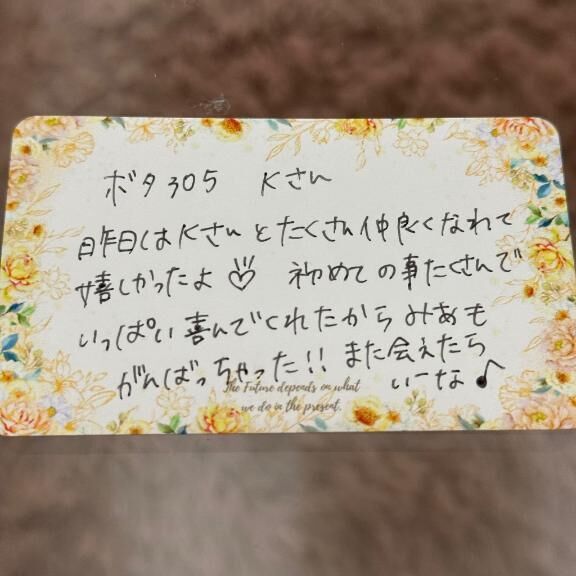 ボタ305 Kさん
昨日はKさんとたくさん仲良くなれて
嬉しかったよ♡ 初めての事たくさんで
いっぱい喜んでくれたからみあも
がんばっちゃった!! また会えたら
いーな♪
The Future depends on what
we do in the present.